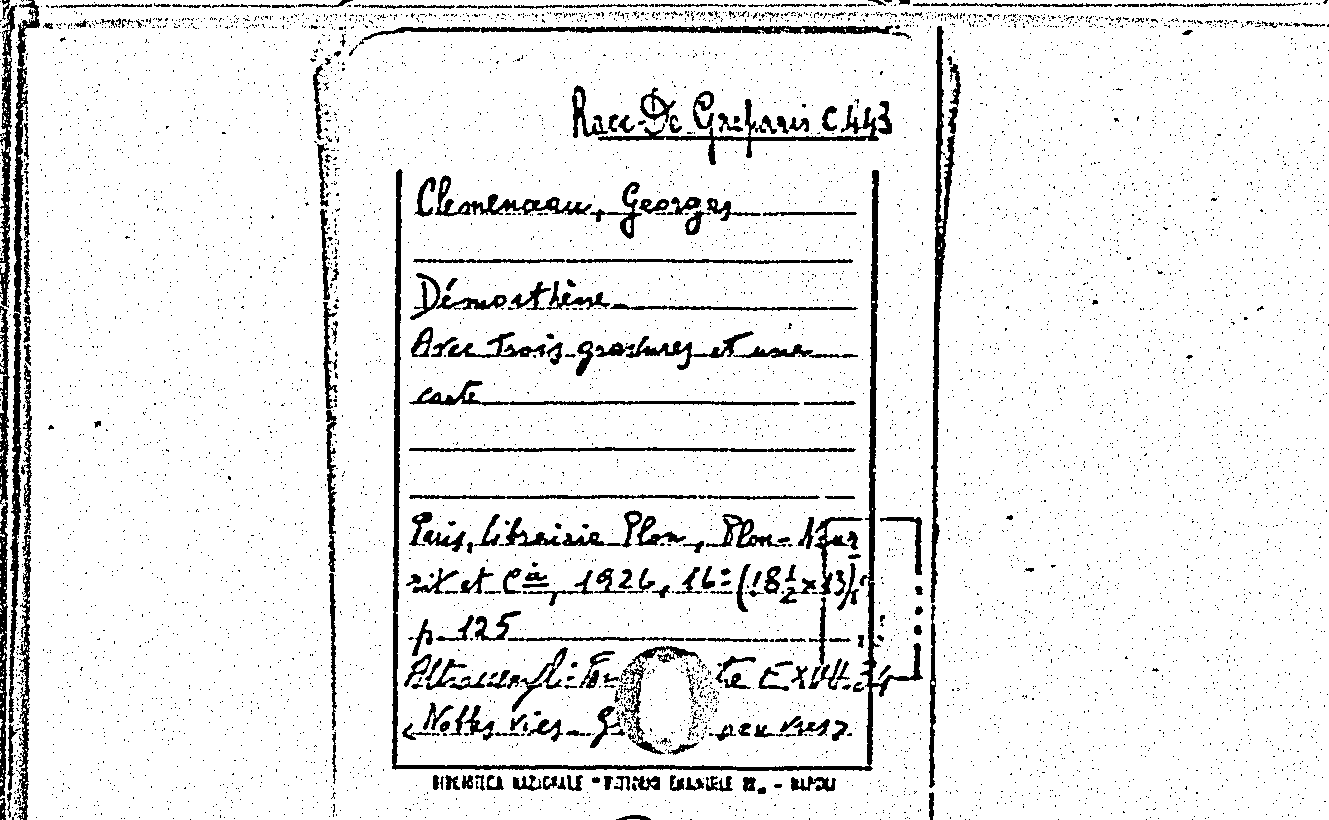 Racc. De Gasparis C 443
Clemenceau, Georges
Démosthène
Avec trois gravures et une
carte
Paris, Librairie Plon, Plon-Nour
rit et C.ie, 1926, 16° (18½ x 13),
p. 125
te EXVII.34
Nobles vies. G
BIBLIOTECA NAZIONALE "VITTORIO EMANUELE III" - NAPOLI